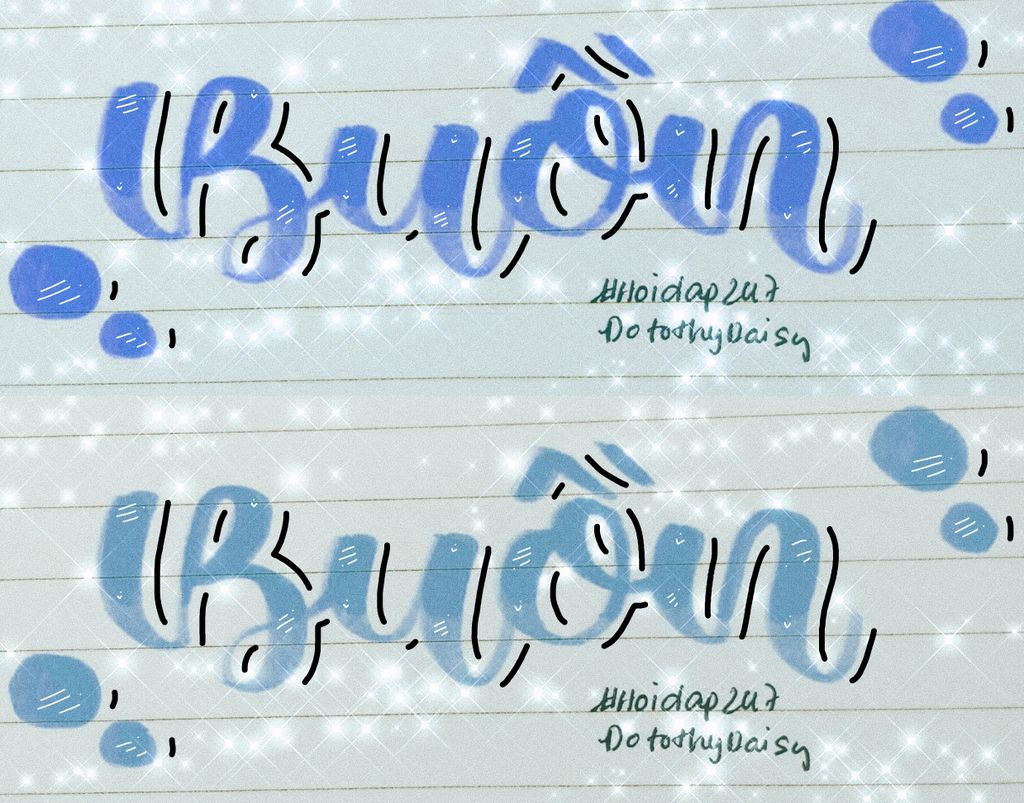 Buồn
#Hoidap247
DotothyDaisy
Buồn
#Hoidap247
DotothyDaisy